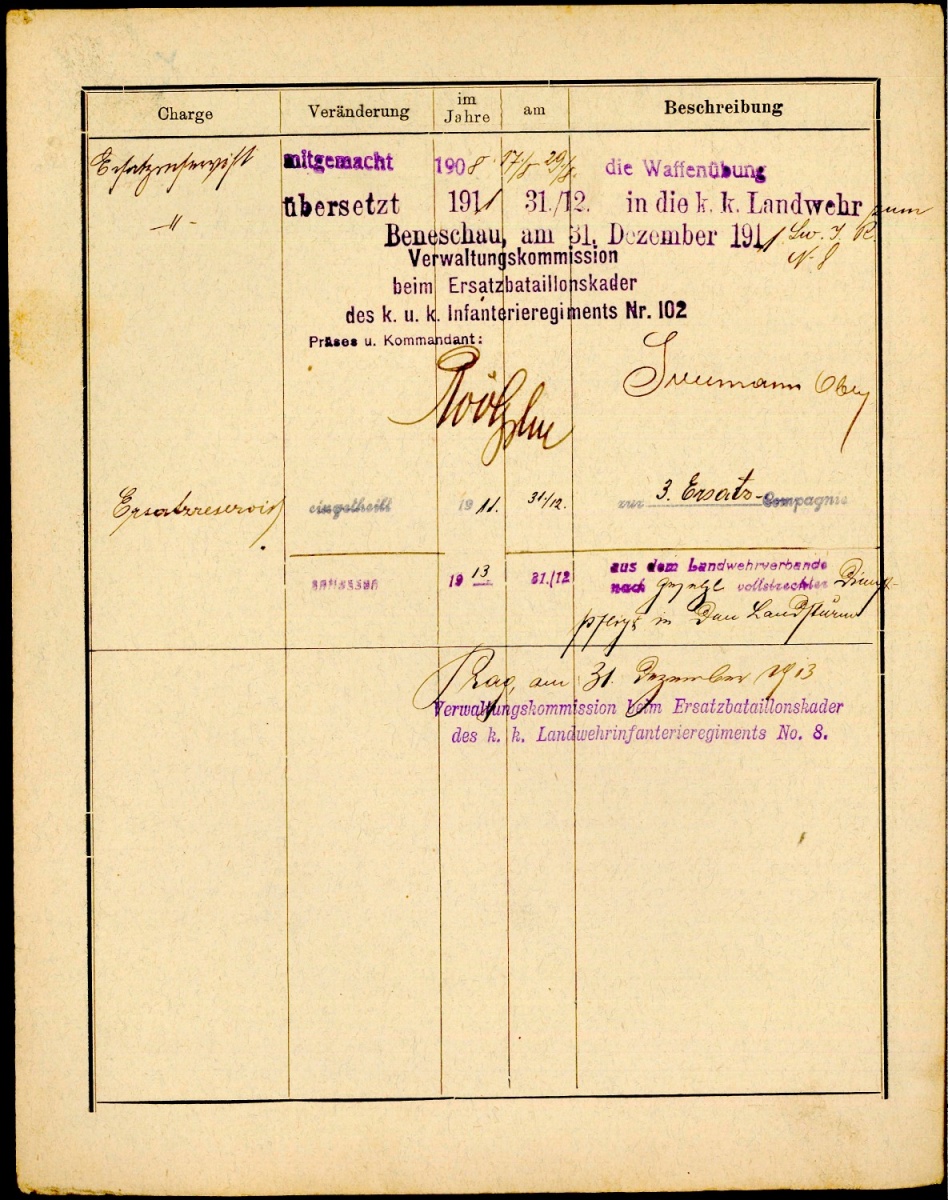 Charge Veränderung im Jahre am Beschreibung
Ersatzreservist mitgemacht 1908 17/8 29/8 die Waffenübung
-"- übersetzt 1911 31./12. in die k. k. Landwehr zum
Beneschau, am 31. Dezember 1911 Lw. I. R.
N. 8
Verwaltungskommission
beim Ersatzbataillonskader
des k. u. k. Infanterieregiments Nr. 102
Präses u. Kommandant:
Ersatzreservist eingetheilt 1911. 31/12. zur 3. Ersatz-Compagnie
entlassen 1913 31./12 aus dem Landwehrverbande
nach gesetzl vollstreckter Dienst-
pflicht in den Landsturm
Prag, am 31. Dezember 1913
Verwaltungskommission beim Ersatzbataillonskader
des k. k. Landwehrinfanterieregiments No. 8.